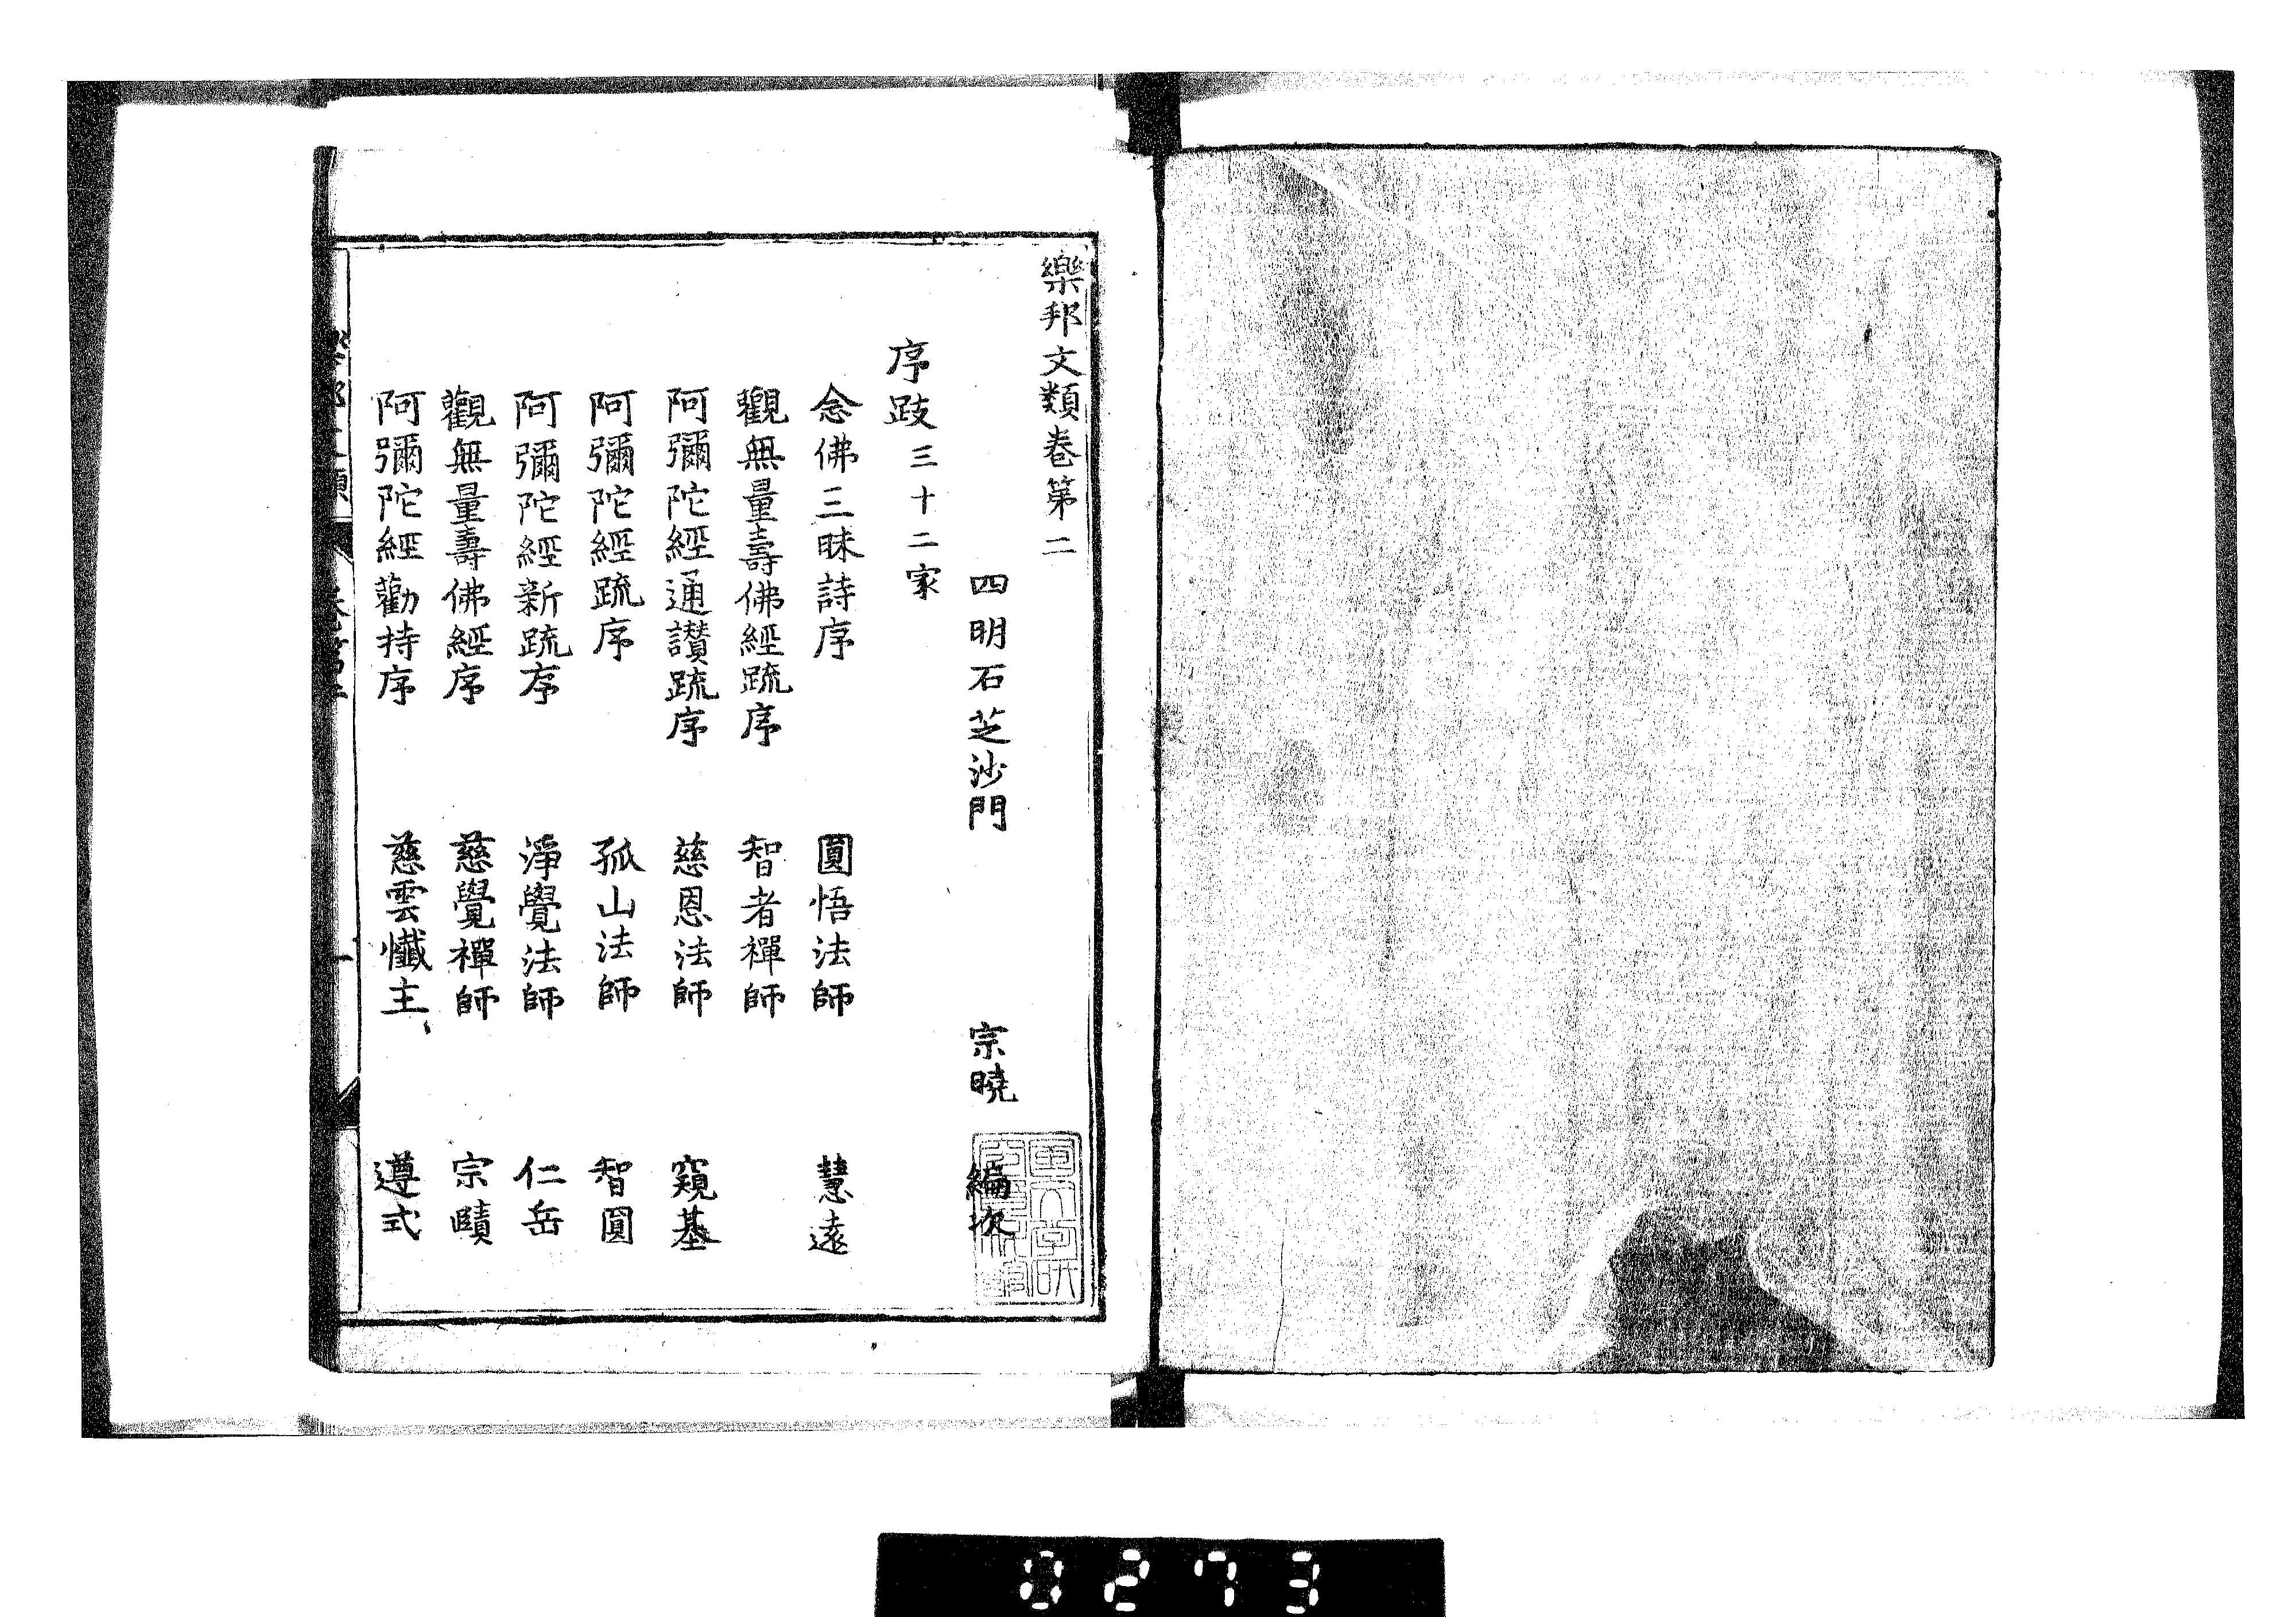 樂邦文類卷第二
四明石芝沙門 宗曉 編次
序跋三十二家
念佛三昧詩序 圓悟法師 慧遠
觀無量壽佛經疏序 智者禪師
阿彌陀經通讃疏序 慈恩法師 窺基
阿彌陀經疏序 孤山法師 智圓
阿彌陀經新疏序 淨覺法師 仁岳
觀無量壽佛經序 慈覺禪師 宗賾
阿彌陀經勸持序 慈雲懺主 遵式
0273